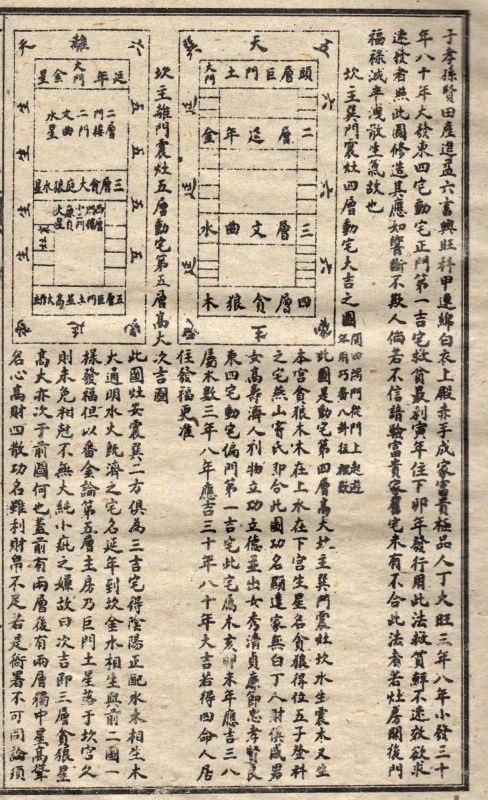 子孝孫賢田產進益六畜興旺科甲連綿白衣上殿赤手成家富貴極品人丁大旺三年八年小發三十
年八十年大發東四宅動宅正門第一吉宅救貧最利寅年住下卯年發行用此法救貧鮮不速效欲求
速發者照此圖修造其應如響斷不欺人倘若不信請驗富貴家舊宅未有不合此法者若灶房開後門
福祿減半洩散生氣故也
坎主巽門震灶四層動宅大吉之圖
五 天 巽
頭層巨門土 大門
二層延年金
三層文曲水
四層貪狼木
生
開四隅門從門上起遊
年用巧番八卦往裡數
此圖是動宅第四層高大坎主巽門震灶坎水生震木又生
本宮貪狼木木在上水在下宮生星名貪狼得位五子登科
之宅無山寄氏即合此圖功名顯達家無白丁人財俱盛男
女高壽濟人利物立功立德並出女秀清貞廉節忠孝賢良
東四宅動宅偏門第一吉宅此宅屬木亥卯未年應吉三八
屬木數三年八年應吉三十年八十年大吉若得四命人居
住發福更准
坎主離門震灶五層動宅第五層高大次吉圖
六 離 天
延年金星 大門
二層門樓 二門 文曲水星
三層貪狼大庭
五層巨門土
五 五 五 五
生 生 生 生
此圖灶安震巽二方俱為三吉宅得陰陽正配水木相生木
火通明水火既濟之宅名延年到坎金水相生與前二圖一
樣發福但以番金論第五層主房乃巨門土星落于坎宮久
則未免相尅不無大純小疵之嫌故曰次吉即三層貪狼星
高大亦次于前圖何也蓋前有兩層後有兩層獨中星高聳
名心高財四散功名雖利財帛不足若是衙署不可同論須